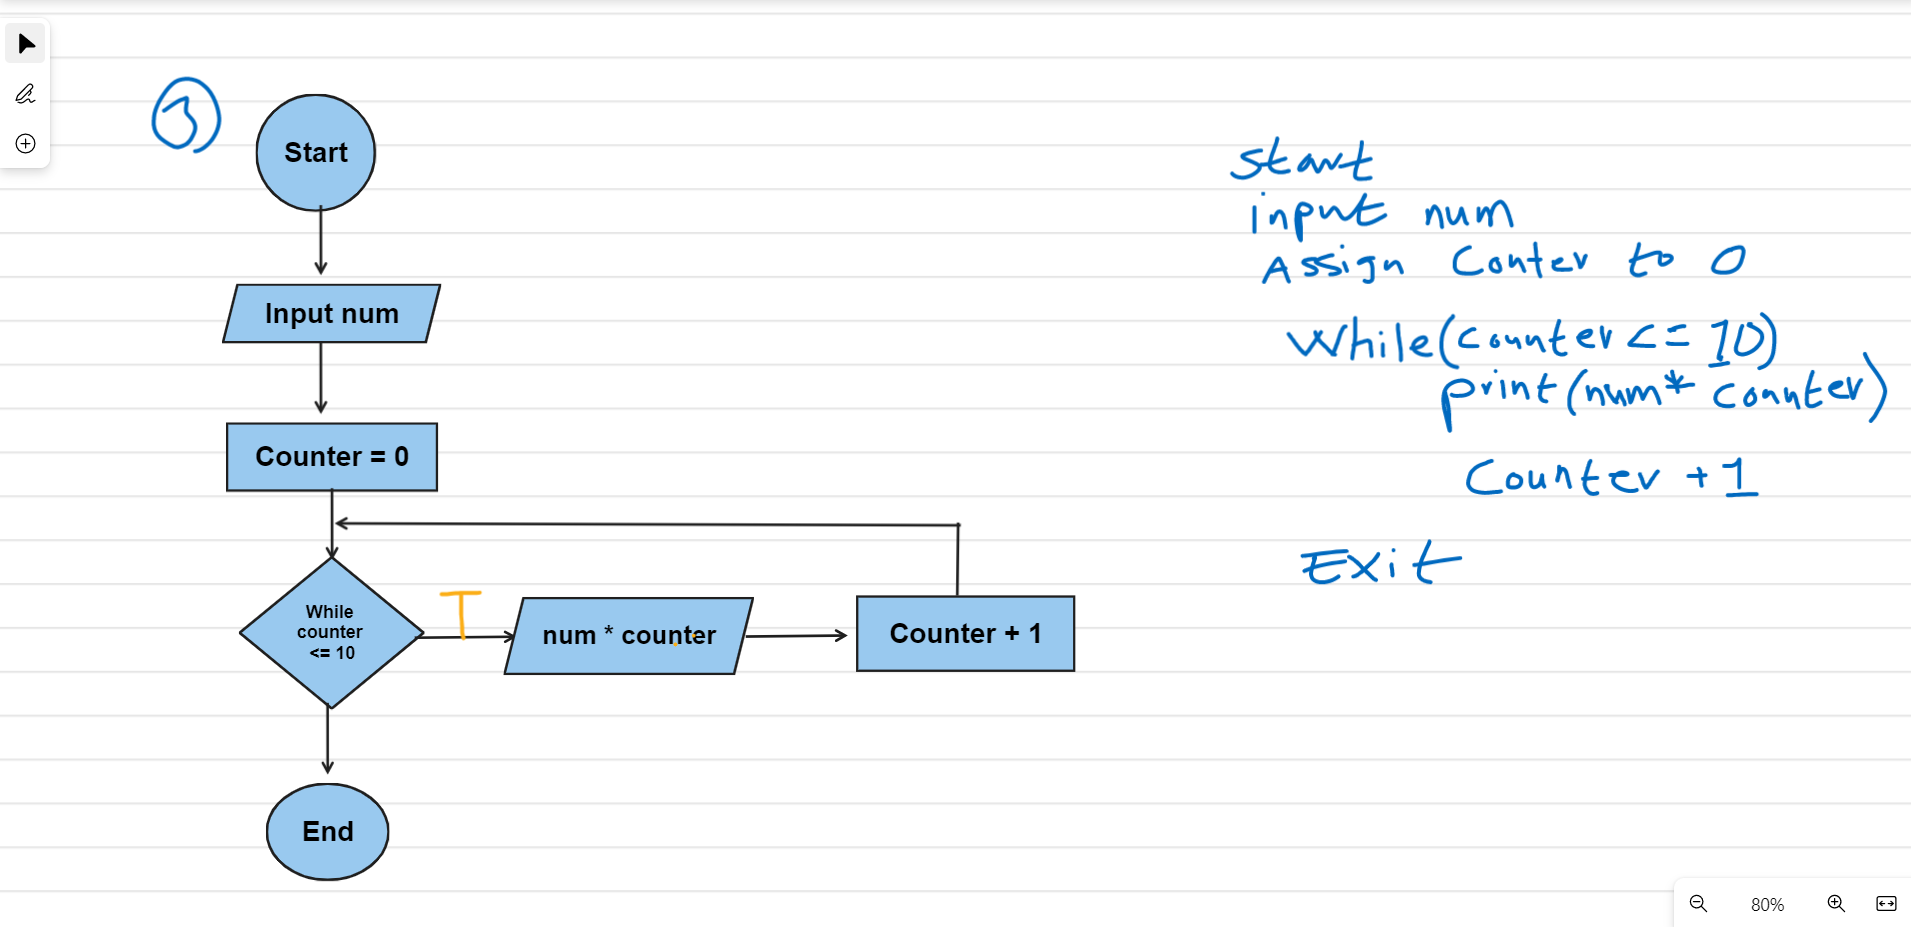 3
Start
Input num
Counter = 0
While
counter
<= 10
T
num * counter
Counter + 1
End
Start
input num
Assign Conter to 0
While(counter <= 10)
print(num* counter)
Counter +1
Exit
80%